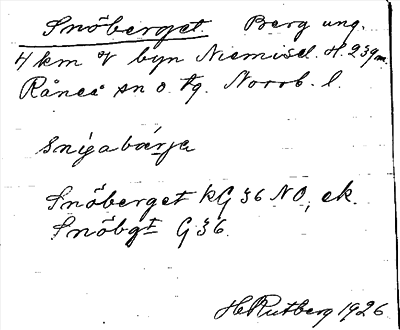 Snöberget Berg ung.
4 km V byn Niemisel. H. 239 m.
Råneå sn o. tg. Norrb. l.
snigabárja
Snöberget kG 36 NO, ek.
Snöbgt G 36.
H Rutberg 1926